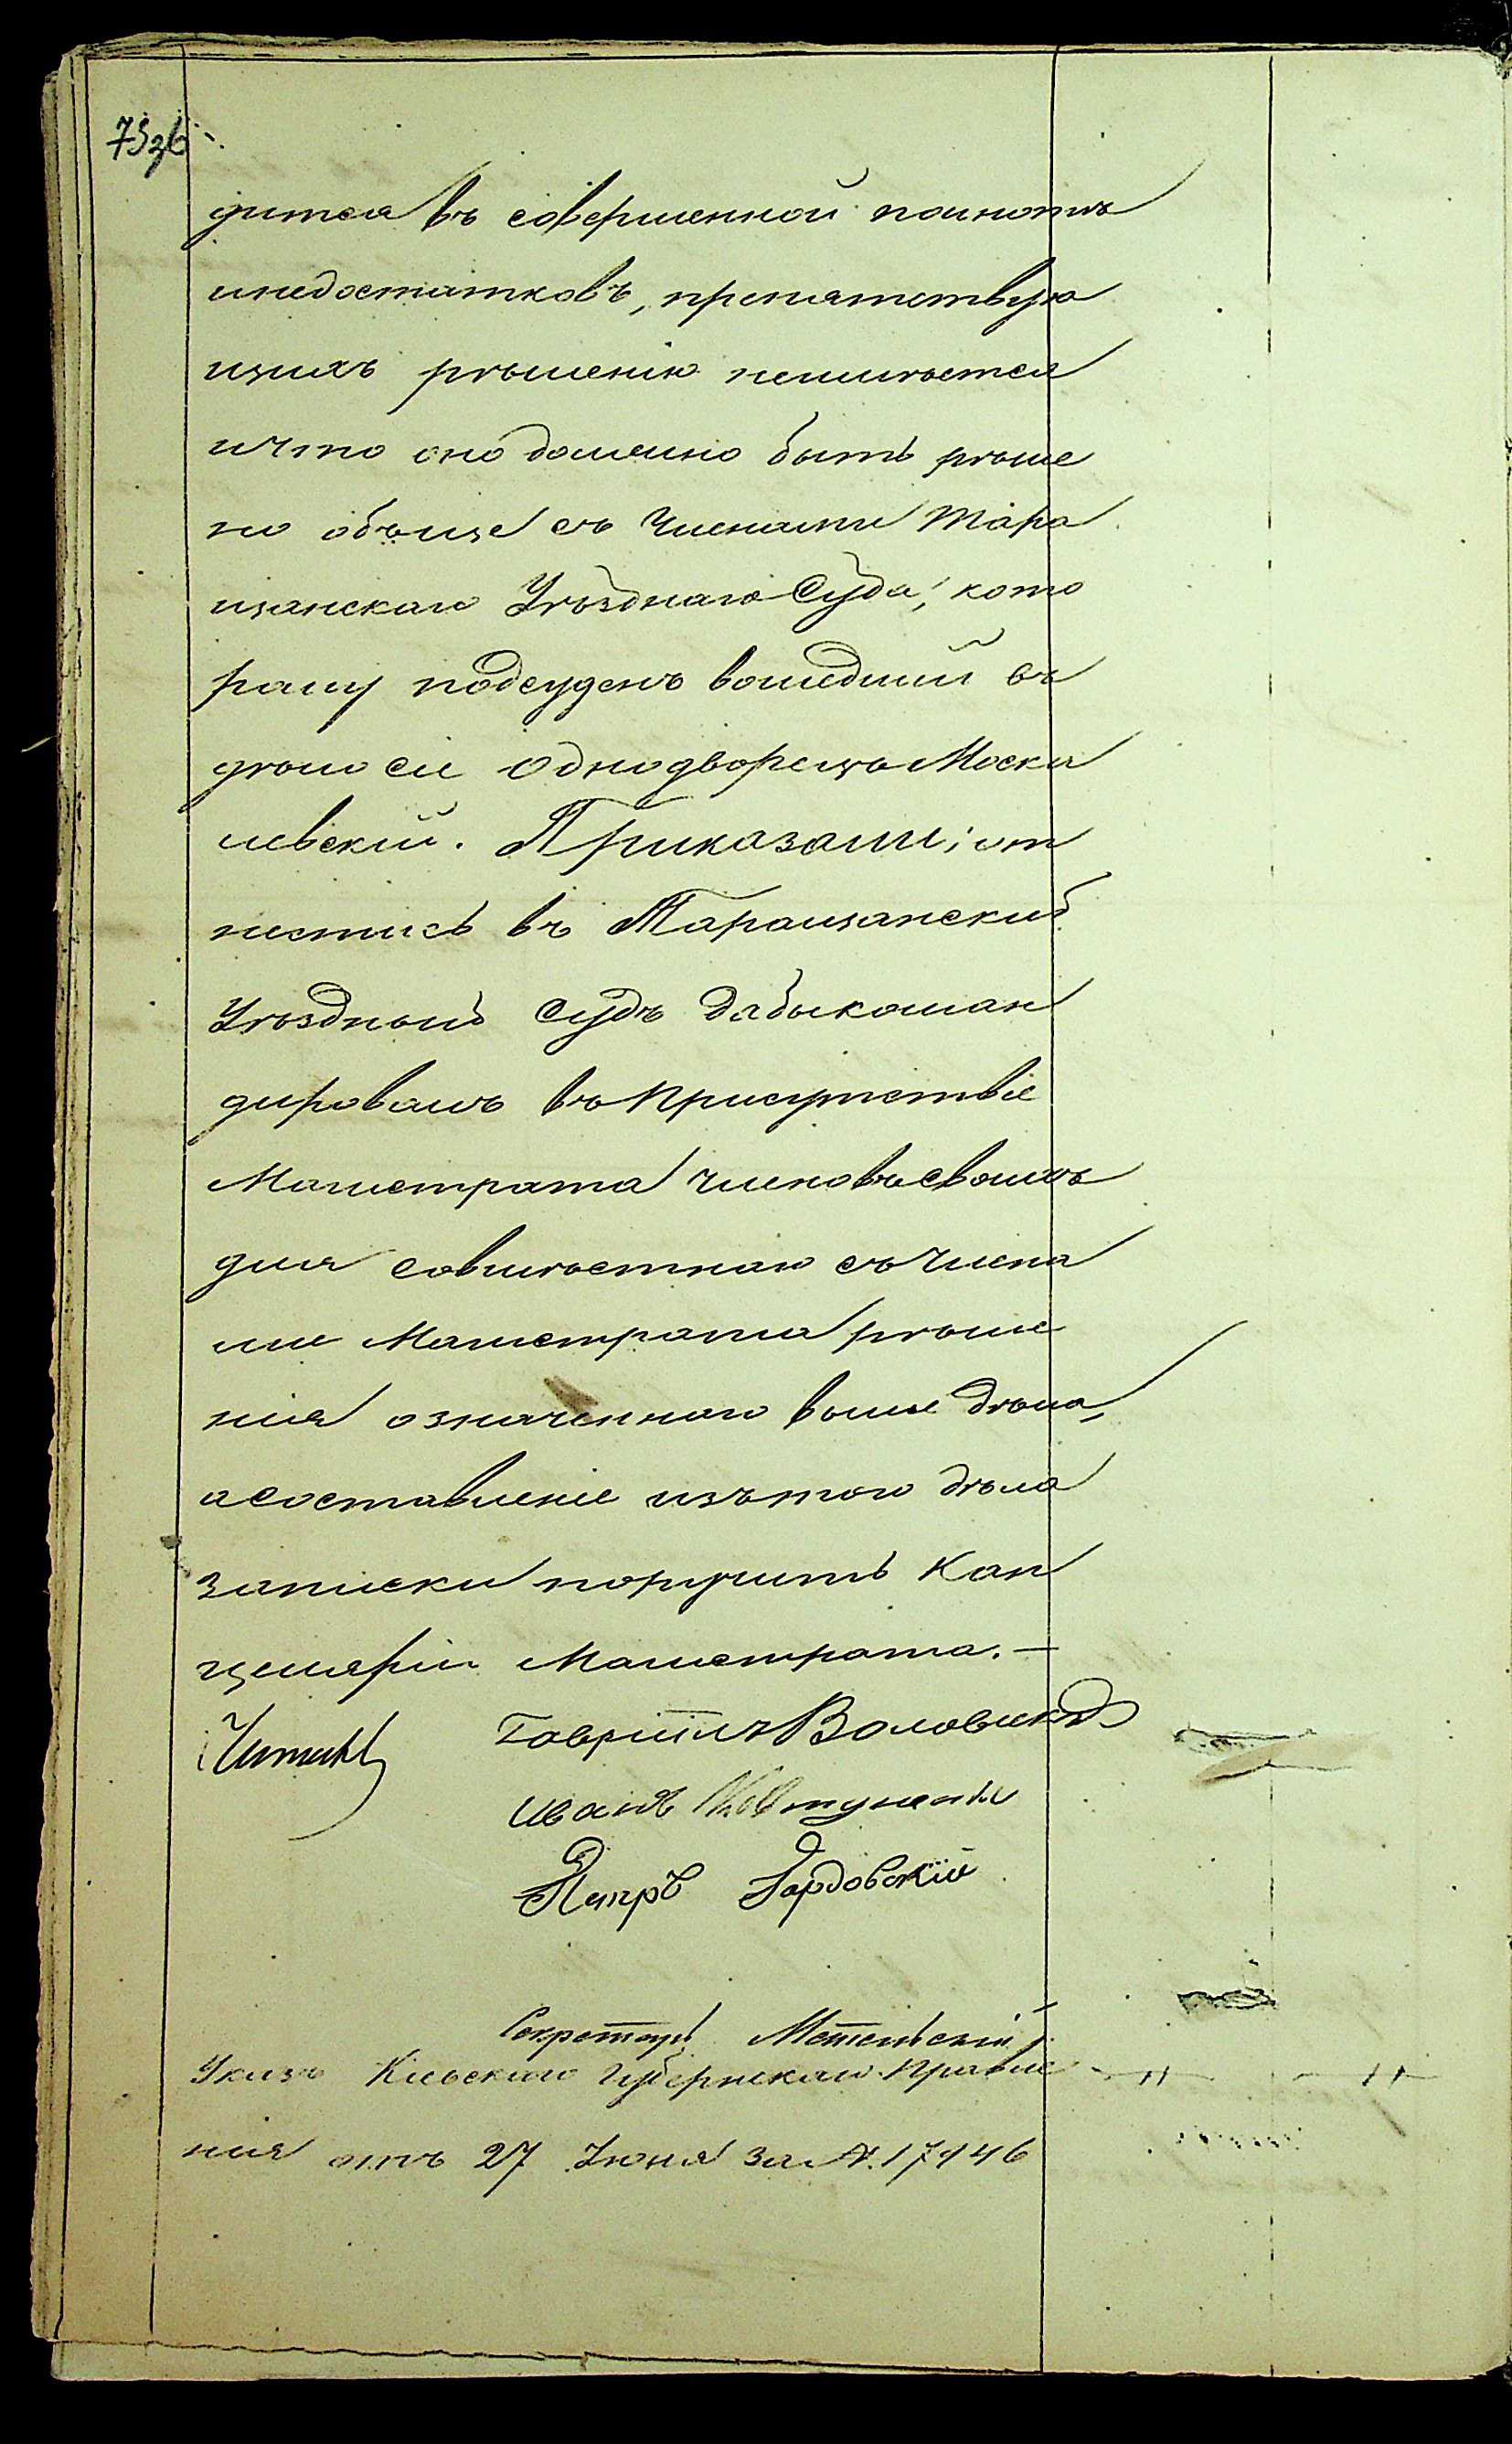 75зв
дится въ совершенной полнотѣ
инедостатковъ, препятствую
щихъ рѣшенію неимѣется
ичто оно должно быть рѣше
но обѣще съ Членами Тара
щанскаго Уѣзднаго Суда, кото
рому подсуденъ вошедшій въ
дѣло сіе однодворецъ Моска
левскій. Приказали: от
нестись въ Таращанскій
Уѣздный Судъ дабыкоман
дировалъ въ Присутствіе
Магистрата членовъ своихъ
для совмѣстнаго съ Члена
ми Магистрата рѣше
нія означеннаго выше дѣла,
асоставленіе изъ того дѣла
записки поручить Кан
целяріи Магистрата. —
Гавріилъ
Иванъ
Петръ Гордовскій
Секретарь
Указъ Кіевскаго Губернскаго Правле
нія отъ 27 Іюня за №. 17946